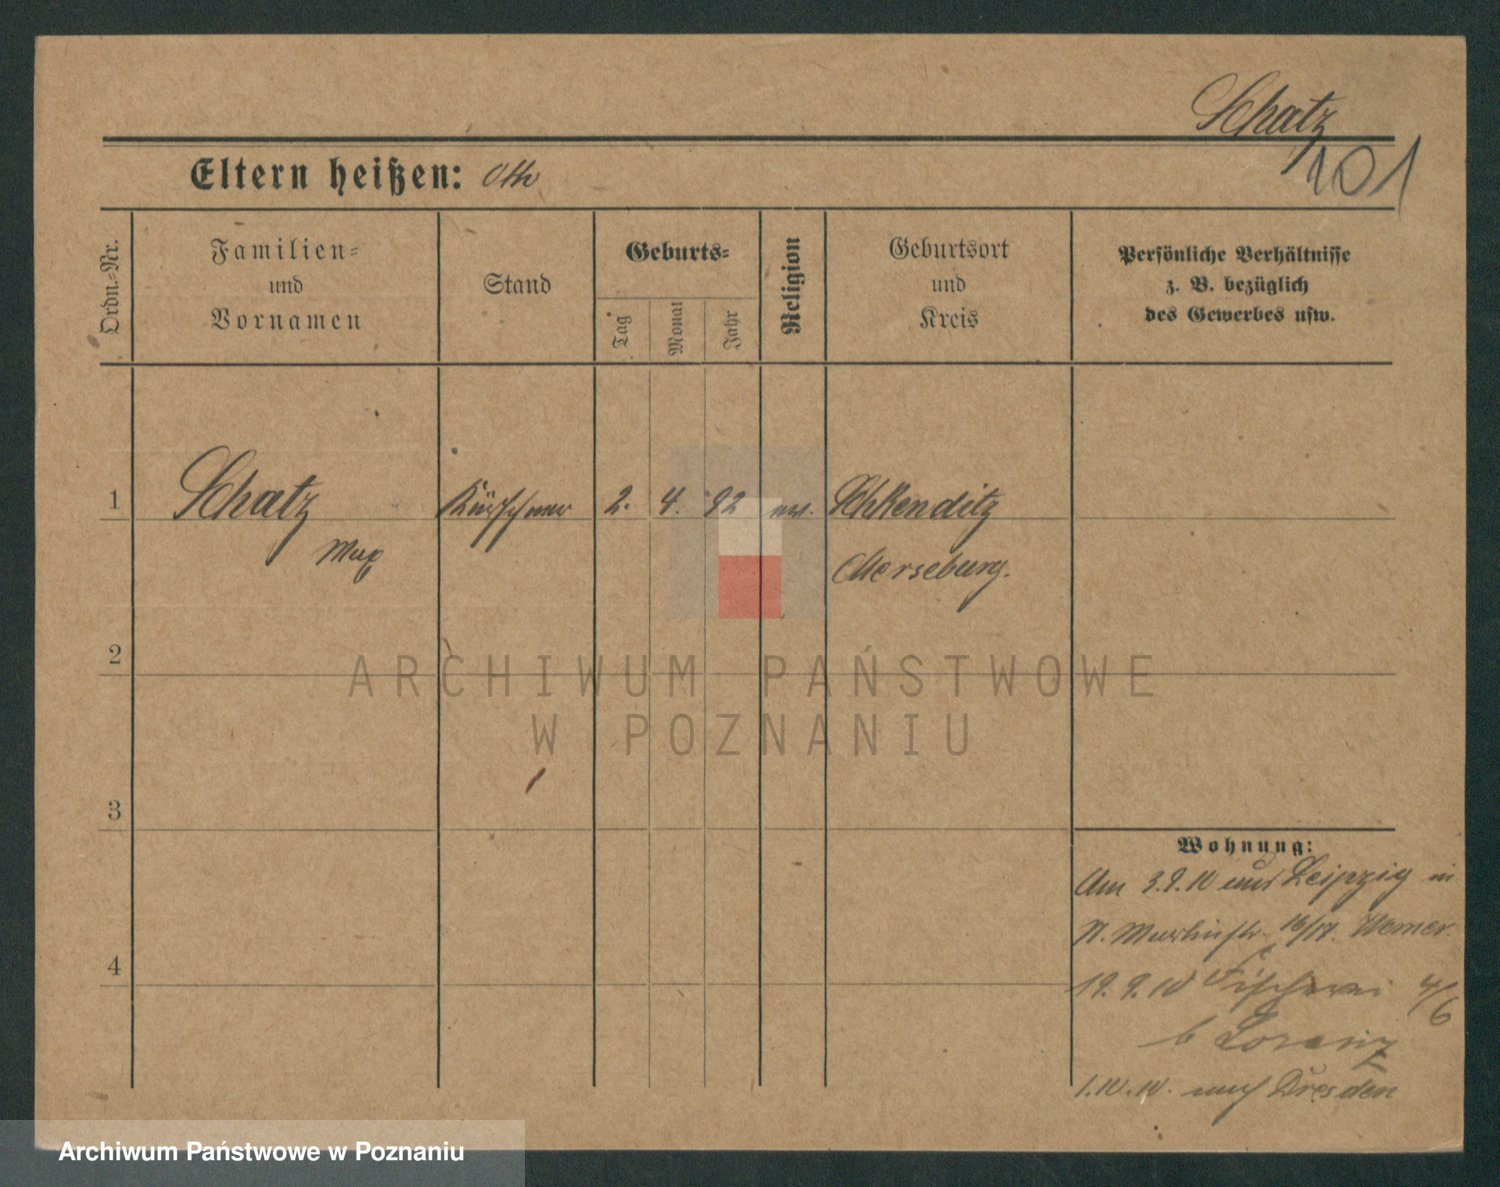 Schatz
101
Eltern heißen: Otto
Ordn.-Nr.
Familien-
und
Vornamen
Stand
Geburts-
Tag
Monat
Jahr
Religion
Geburtsort
und
Kreis
Persönliche Verhältnisse
z. B. bezüglich
des Gewerbes usw.
1
Schatz
Max
Kürschner
2. 4. 92
ev.
Schkenditz
Merseburg.
2
ARCHIWUM PAŃSTWOWE
W POZNANIU
3
4
Wohnung:
Am 3.9.10 aus Leipzig in
St. Martinstr. 16/17. Werner.
19.9.10 Fischerei 4/6
b Lorenz
1.10.10. nach Dresden
Archiwum Państwowe w Poznaniu